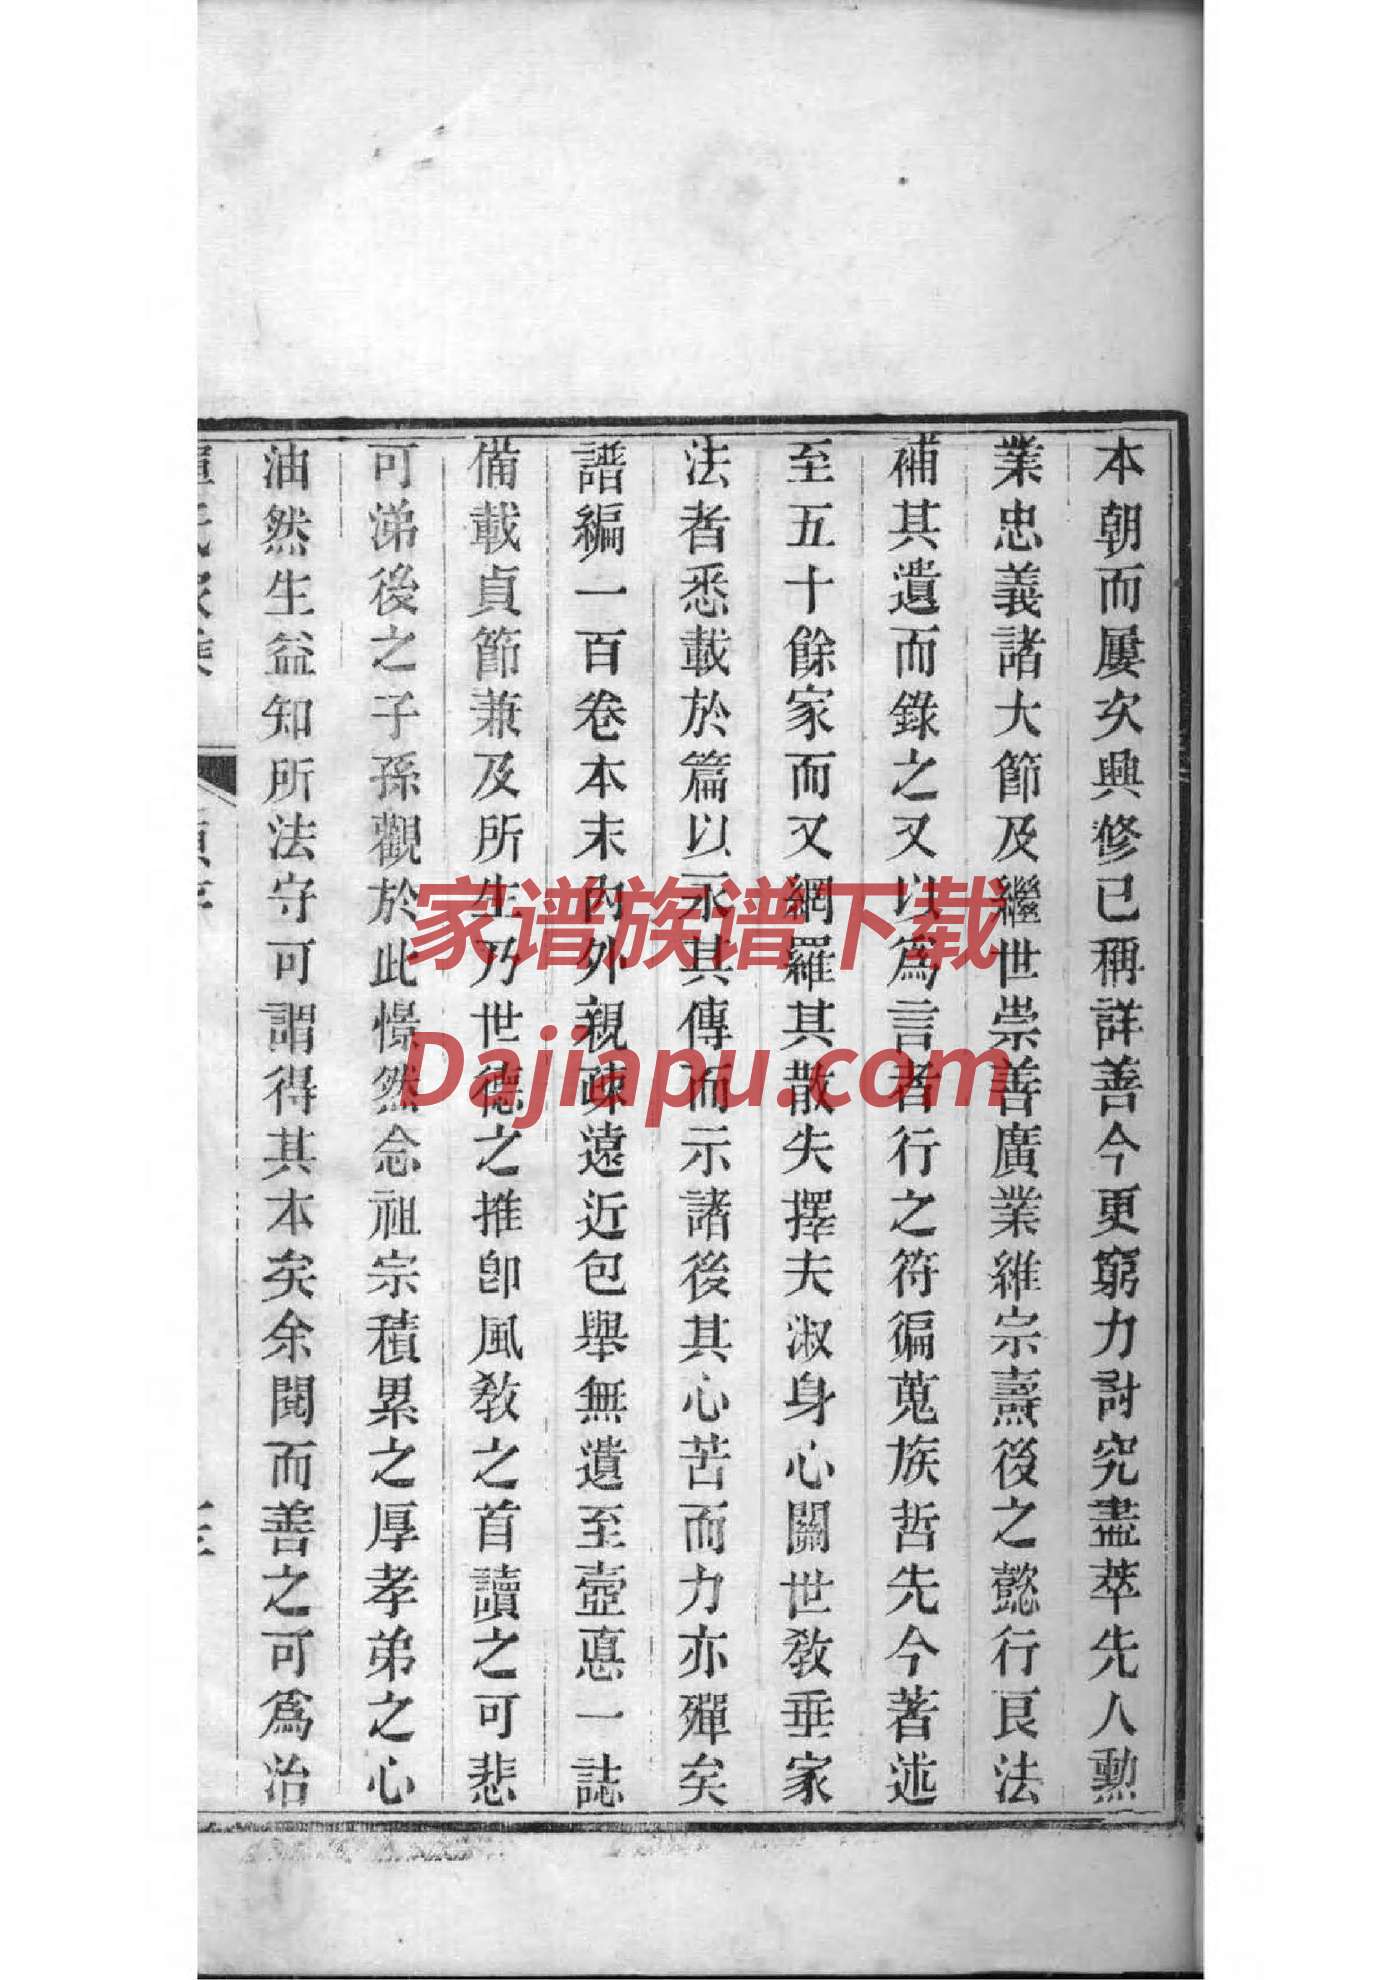 本朝而屢次興修已稱詳善今更窮力討究盡萃先人勲
業忠義諸大節及繼世崇善廣業維宗壽後之懿行良法
補其遺而錄之又以爲言者行之符徧蒐族哲先今著述
至五十餘家而又網羅其散失擇夫淑身心關世敎垂家
法者悉載於篇以永其傳而示諸後其心苦而力亦殫矣
譜編一百卷本末內外親疎遠近包舉無遺至壼悳一誌
備載貞節兼及所生乃世德之推卽風敎之首讀之可悲
可涕後之子孫觀於此憬然念祖宗積累之厚孝弟之心
油然生益知所法守可謂得其本矣余閱而善之可爲治
家谱族谱下载
Dajiapu.com